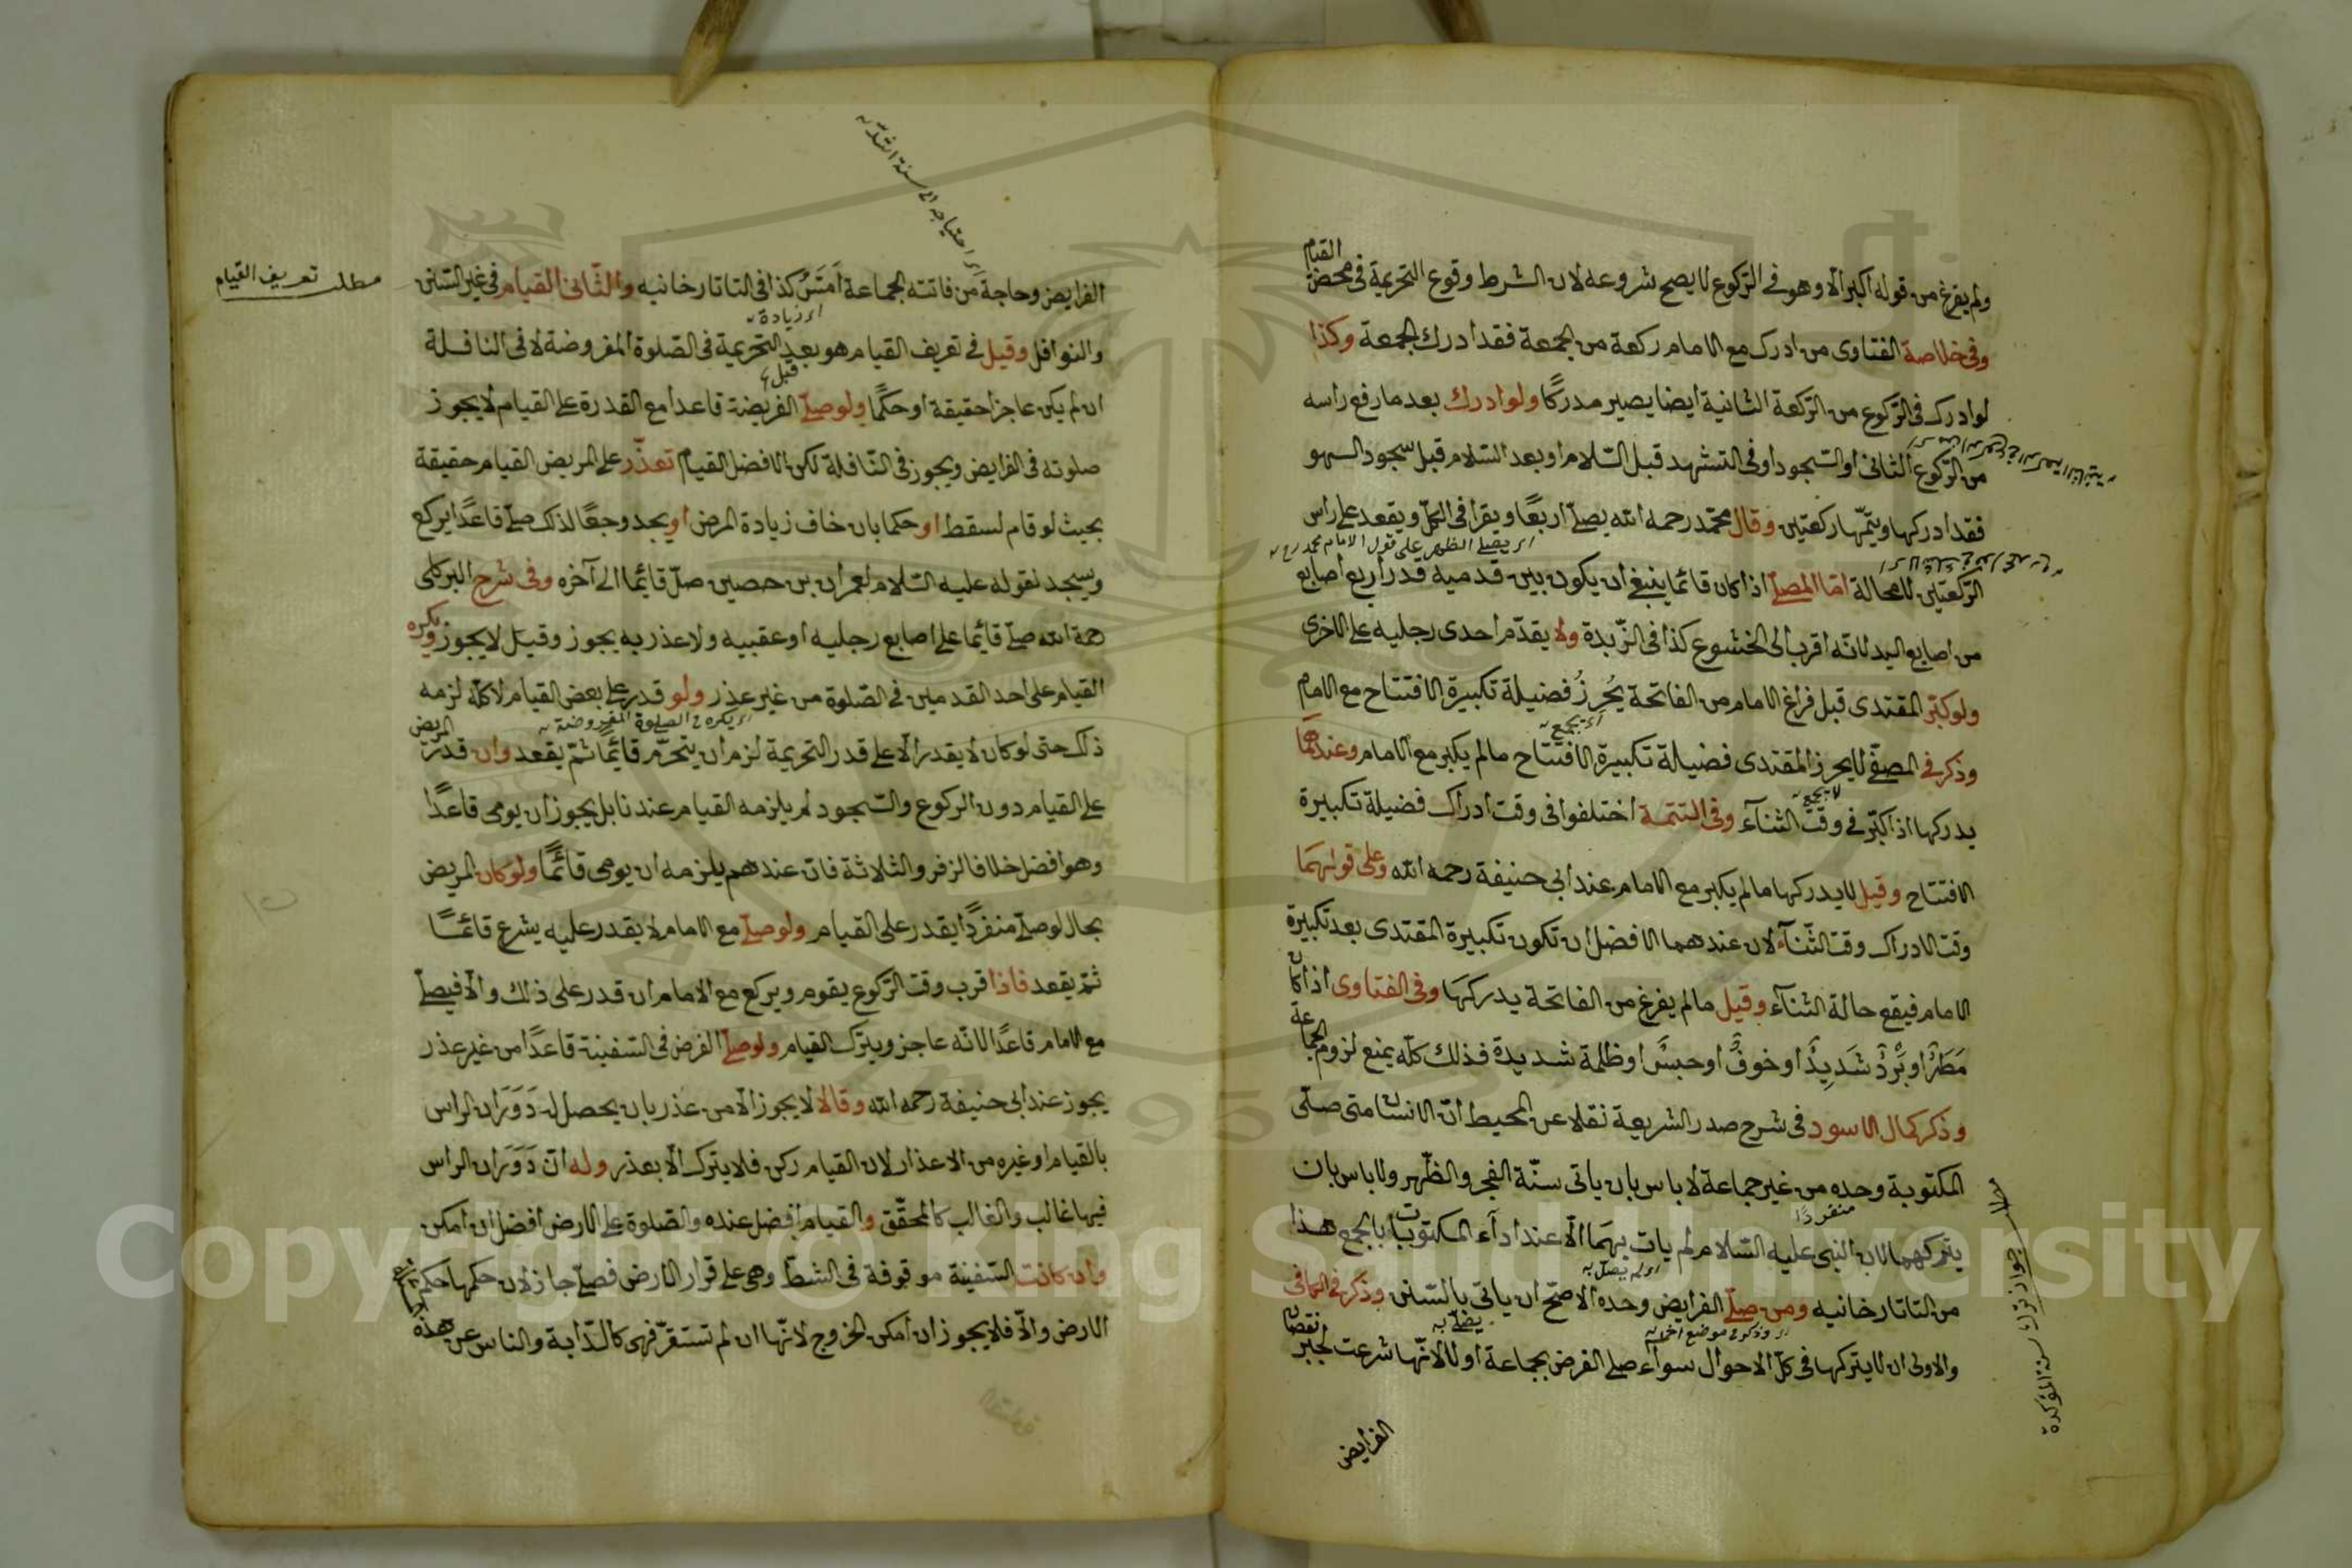 ولم يفرغ من قوله اكبر الا وهو في الركوع لا يصح شروعه لان الشرط وقوع التحريمة في محض القيام
وفي خلاصة الفتاوى من ادرك مع الامام ركعة من الجمعة فقد ادرك الجمعة وكذا
لو ادرك في الركوع من الركعة الثانية ايضا يصير مدركًا ولو ادرك بعد ما رفع راسه
من الركوع الثاني او السجود او في التشهد قبل السلام او بعد السلام قبل سجود السهو
فقد ادركها ويتمها ركعتين وقال محمد رحمه الله يصلي اربعًا ويقرا في الكل ويقعد على راس
اى يصلي الظهر على قول الامام محمد
الركعتين لا محالة اما المصلي اذا كان قائما ينبغي ان يكون بين قدميه قدر اربع اصابع
من اصابع اليد لانه اقرب الى الخشوع كذا في الزبدة ولا يقدم احدى رجليه على الاخرى
ولو كبر المقتدى قبل فراغ الامام من الفاتحة يُحرِزُ فضيلة تكبيرة الافتتاح مع الامام
اى يجمع
وذكر في المصفى لا يحرز المقتدى فضيلة تكبيرة الافتتاح مالم يكبر مع الامام وعندهما
لا يجمع
يدركها اذا كبر في وقت الثنآء وفي التتمة اختلفوا في وقت ادراك فضيلة تكبيرة
الافتتاح وقيل لا يدركها ما لم يكبر مع الامام عند ابي حنيفة رحمه الله وعلى قولهما
وقت الادراك وقت الثنآء لان عندهما الافضل ان تكون تكبيرة المقتدى بعد تكبيرة
الامام فيقع حالة الثنآء وقيل ما لم يفرغ من الفاتحة يدركها وفي الفتاوى اذا كان
مَطَرٌ او بَرْدٌ شَدِيدٌ او خوفٌ او حبسٌ او ظلمة شديدة فذلك كله يمنع لزوم الجماعة
وذكر كمال الاسود في شرح صدر الشريعة نقلا عن المحيط ان الانسان متى صلى
المكتوبة وحده من غير جماعة لا باس بان ياتى سنة الفجر والظهر ولا باس بان
منفردًا
يتركهما لان النبى عليه السلام لم يات بهما الا عند ادآء المكتوبات بالجمع هذا
جواز ترك سنة المؤكدة
من التاتارخانيه ومن صلى الفرايض وحده الاصح ان ياتى بالسنن وذكر في الكافي
والاولى ان لا يتركها في كل الاحوال سوآء صلى الفرض بجماعة او لا لانها شرعت لجبر نقصان
الفرايض
مطلب تعريف القيام
اى احتياجه الى سنة اشد
الفرايض وحاجة من فاتته الجماعة اَمَسُّ كذا في التاتارخانيه والثانى القيام في غير السنن
اى زيادة
والنوافل وقيل في تعريف القيام هو بعد التحريمة في الصلوة المفروضة لا في النافلة
ان لم يكن عاجزا حقيقة او حكمًا ولو صلى الفريضة قاعدا مع القدرة على القيام لا يجوز
صلوته في الفرايض ويجوز في النافلة لكن الافضل القيام تعذر على المريض القيام حقيقة
بحيث لو قام لسقط او حكما بان خاف زيادة المرض او يجد وجعًا لذلك صلى قاعدًا يركع
ويسجد لقوله عليه السلام لعمران بن حصين صل قائما الى آخره وفي شرح البركلى
رحمة الله صلى قائما على اصابع رجليه او عقبيه ولا عذر به يجوز وقيل لا يجوز ويكره
القيام على احد القدمين في الصلوة من غير عذر ولو قدر على بعض القيام لا كله لزمه
اى يكره في الصلوة المفروضة
ذلك حتى لو كان لا يقدر الا على قدر التحريمة لزم ان يتحرم قائمًا ثم يقعد وان قدر المريض
على القيام دون الركوع والسجود لم يلزمه القيام عندنا بل يجوز ان يومى قاعدًا
وهو افضل خلافا لزفر والثلاثة فان عندهم يلزمه ان يومى قائمًا ولو كان المريض
بحال لو صلى منفردًا يقدر على القيام ولو صلى مع الامام لا يقدر عليه يشرع قائمًا
ثم يقعد فاذا قرب وقت الركوع يقوم ويركع مع الامام ان قدر على ذلك والا فيصلى
مع الامام قاعدًا لانه عاجز ويترك القيام ولو صلى الفرض في السفينة قاعدًا من غير عذر
يجوز عند ابى حنيفة رحمه الله وقالا لا يجوز الا من عذر بان يحصل له دَوَرَان الراس
بالقيام او غيره من الاعذار لان القيام ركن فلا يترك الا بعذر وله ان دَوَرَان الراس
فيها غالب والغالب كالمحقق والقيام افضل عنده والصلوة على الارض افضل ان امكن
وان كانت السفينة موقوفة في الشط وهى على قرار الارض فصلى جاز لان حكمها حكم
الارض والا فلا يجوز ان امكن الخروج لانها ان لم تستقر فهى كالدابة والناس عن هذه
Copyright © King Saud University
1957